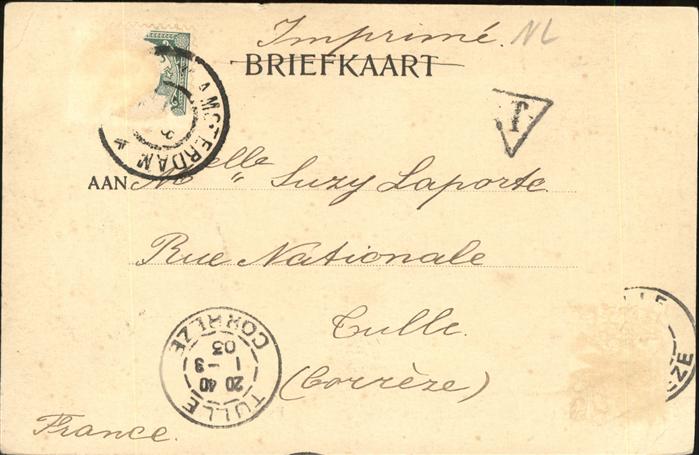 Imprimé. NL
BRIEFKAART
AMSTERDAM
T
AAN Melle Suzy Laporte
Rue Nationale
Tulle.
(Corrèze)
France.
TULLE
20 40
1 - 3
03
CORRÈZE
TULLE
ZE